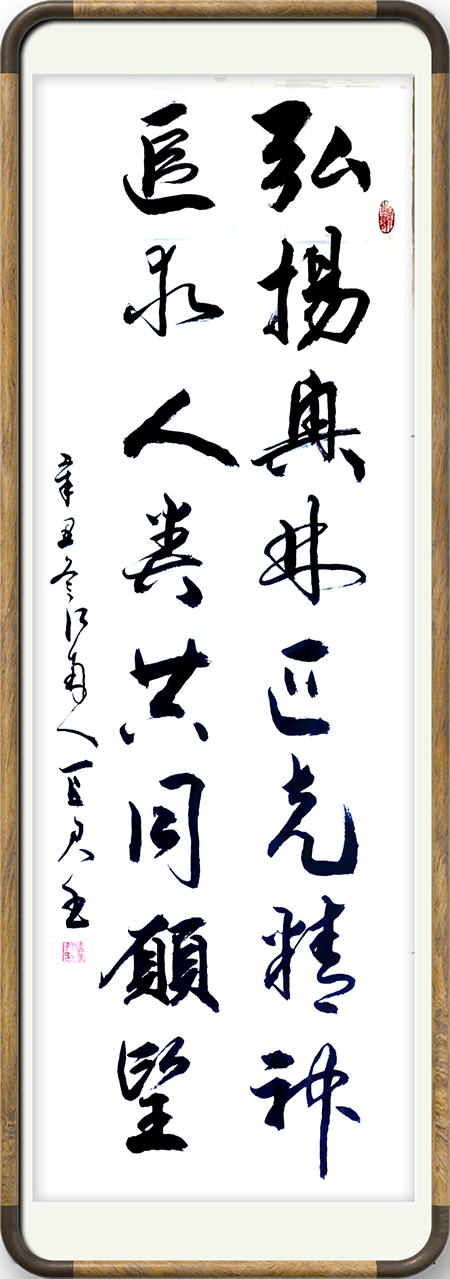 弘揚奥林匹克精神
追求人类共同願望
辛丑冬江南人